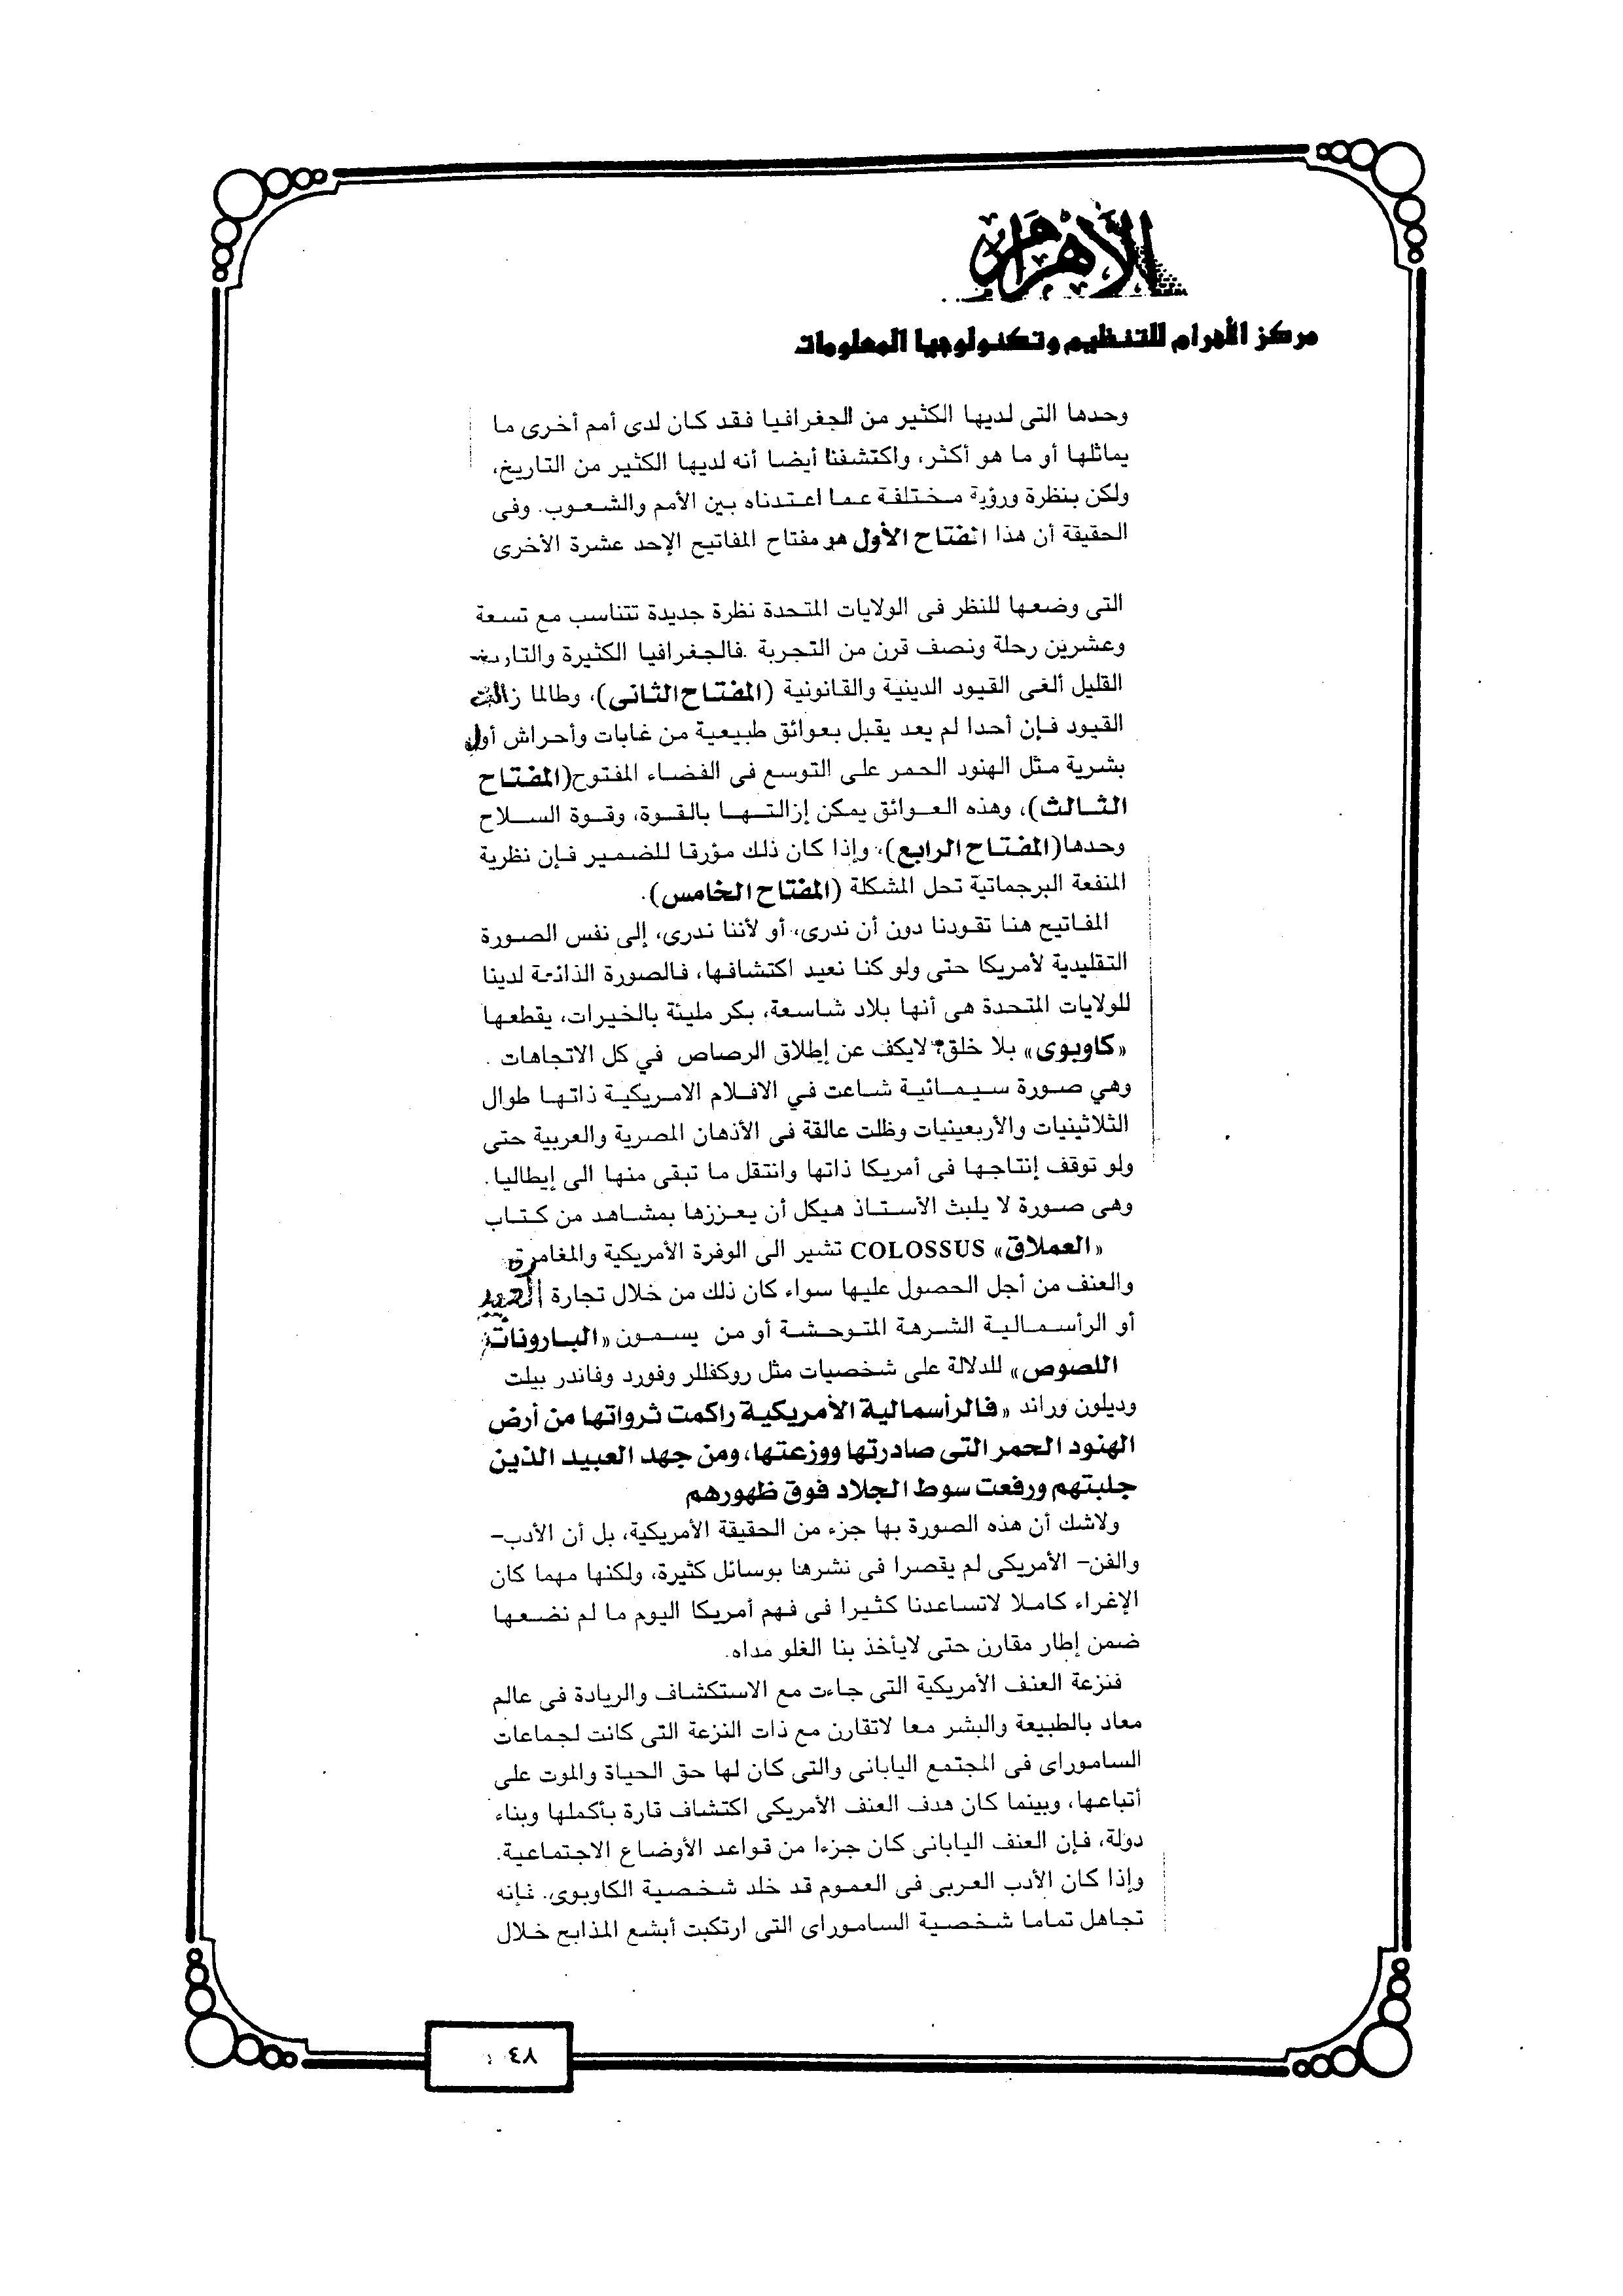 الأهرام
مركز الأهرام للتنظيم وتكنولوجيا المعلومات
وحدها التى لديها الكثير من الجغرافيا فقد كان لدى أمم أخرى ما
يماثلها أو ما هو أكثر، واكتشفنا أيضا أنه لديها الكثير من التاريخ،
ولكن بنظرة ورؤية مختلفة عما اعتدناه بين الأمم والشعوب. وفى
الحقيقة أن هذا انفتاح الأول هو مفتاح المفاتيح الإحد عشرة الأخرى
التى وضعها للنظر فى الولايات المتحدة نظرة جديدة تتناسب مع تسعة
وعشرين رحلة ونصف قرن من التجربة .فالجغرافيا الكثيرة والتاريخ
القليل ألغى القيود الدينية والقانونية (المفتاح الثانى)، وطالما زالت
القيود فإن أحدا لم يعد يقبل بعوائق طبيعية من غابات وأحراش أو
بشرية مثل الهنود الحمر على التوسع فى الفضاء المفتوح(المفتاح
الثالث)، وهذه العوائق يمكن إزالتها بالقوة، وقوة السلاح
وحدها(المفتاح الرابع)، وإذا كان ذلك مؤرقا للضمير فإن نظرية
المنفعة البرجماتية تحل المشكلة (المفتاح الخامس).
المفاتيح هنا تقودنا دون أن ندرى، أو لأننا ندرى، إلى نفس الصورة
التقليدية لأمريكا حتى ولو كنا نعيد اكتشافها، فالصورة الذائعة لدينا
للولايات المتحدة هى أنها بلاد شاسعة، بكر مليئة بالخيرات، يقطعها
«كاوبوى» بلا خلق؟ لايكف عن إطلاق الرصاص في كل الاتجاهات .
وهي صورة سيمائية شاعت في الافلام الامريكية ذاتها طوال
الثلاثينيات والأربعينيات وظلت عالقة فى الأذهان المصرية والعربية حتى
ولو توقف إنتاجها فى أمريكا ذاتها وانتقل ما تبقى منها الى إيطاليا.
وهى صورة لا يلبث الأستاذ هيكل أن يعززها بمشاهد من كتاب
«العملاق» COLOSSUS تشير الى الوفرة الأمريكية والمغامرة
والعنف من أجل الحصول عليها سواء كان ذلك من خلال تجارة العبيد
أو الرأسمالية الشرهة المتوحشة أو من يسمون «البارونات
اللصوص» للدلالة على شخصيات مثل روكفللر وفورد وفاندر بيلت
وديلون وراند «فالرأسمالية الأمريكية راكمت ثرواتها من أرض
الهنود الحمر التى صادرتها ووزعتها، ومن جهد العبيد الذين
جلبتهم ورفعت سوط الجلاد فوق ظهورهم
ولاشك أن هذه الصورة بها جزء من الحقيقة الأمريكية، بل أن الأدب–
والفن– الأمريكى لم يقصرا فى نشرها بوسائل كثيرة، ولكنها مهما كان
الإغراء كاملا لاتساعدنا كثيرا فى فهم أمريكا اليوم ما لم نضعها
ضمن إطار مقارن حتى لايأخذ بنا الغلو مداه.
فنزعة العنف الأمريكية التى جاءت مع الاستكشاف والريادة فى عالم
معاد بالطبيعة والبشر معا لاتقارن مع ذات النزعة التى كانت لجماعات
الساموراى فى المجتمع اليابانى والتى كان لها حق الحياة والموت على
أتباعها، وبينما كان هدف العنف الأمريكى اكتشاف قارة بأكملها وبناء
دولة، فإن العنف اليابانى كان جزءا من قواعد الأوضاع الاجتماعية.
وإذا كان الأدب العربى فى العموم قد خلد شخصية الكاوبوى. فإنه
تجاهل تماما شخصية الساموراى التى ارتكبت أبشع المذابح خلال